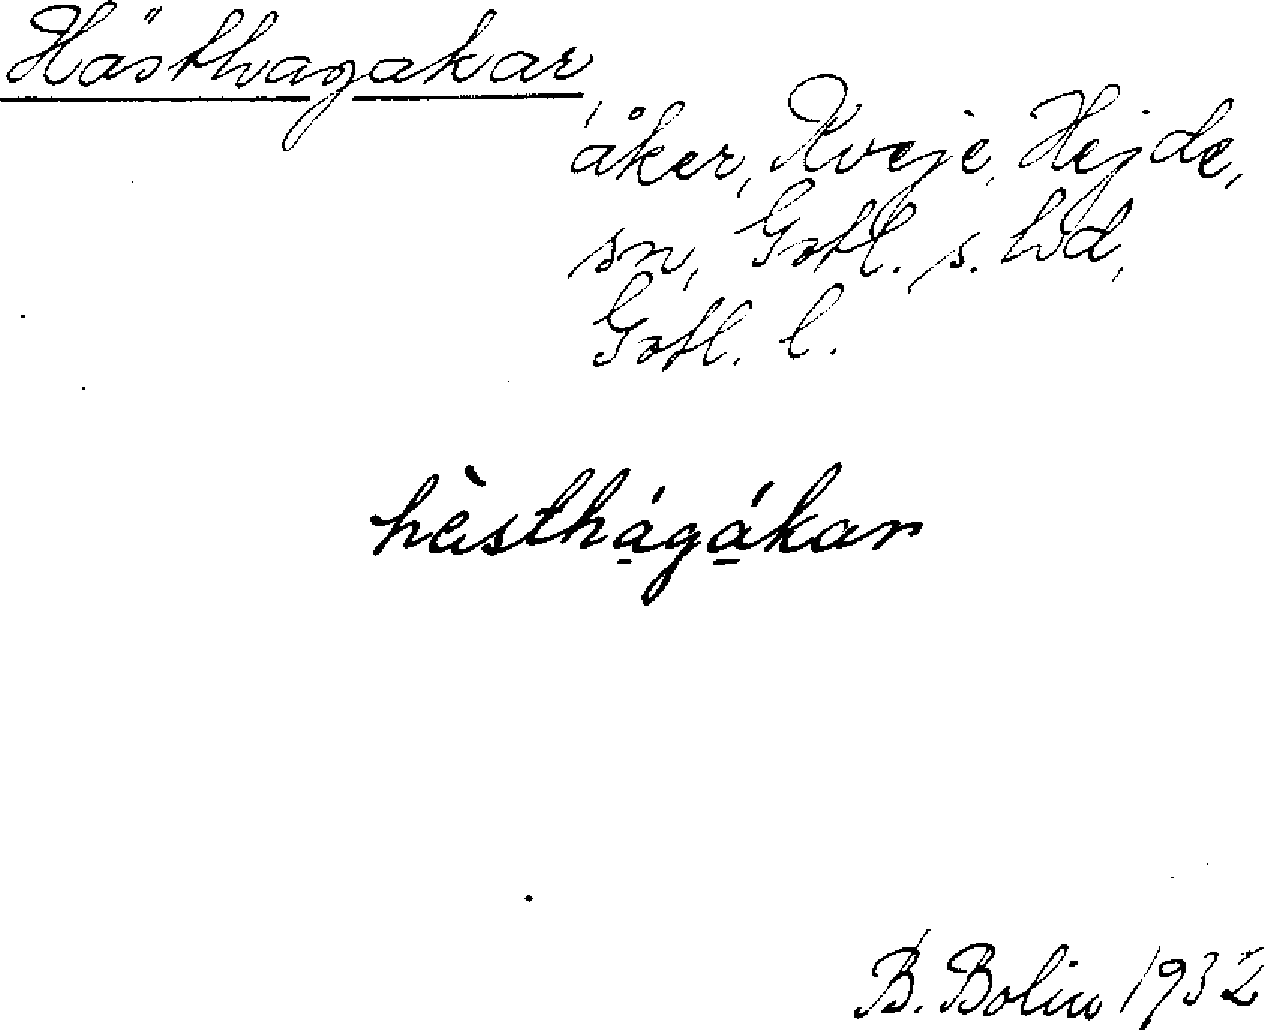 Hästhagakar
åker, Kveje, Hejde,
sn, Gotl. s. hd,
Gotl. l.
hästhágákar
B. Bolin 1932